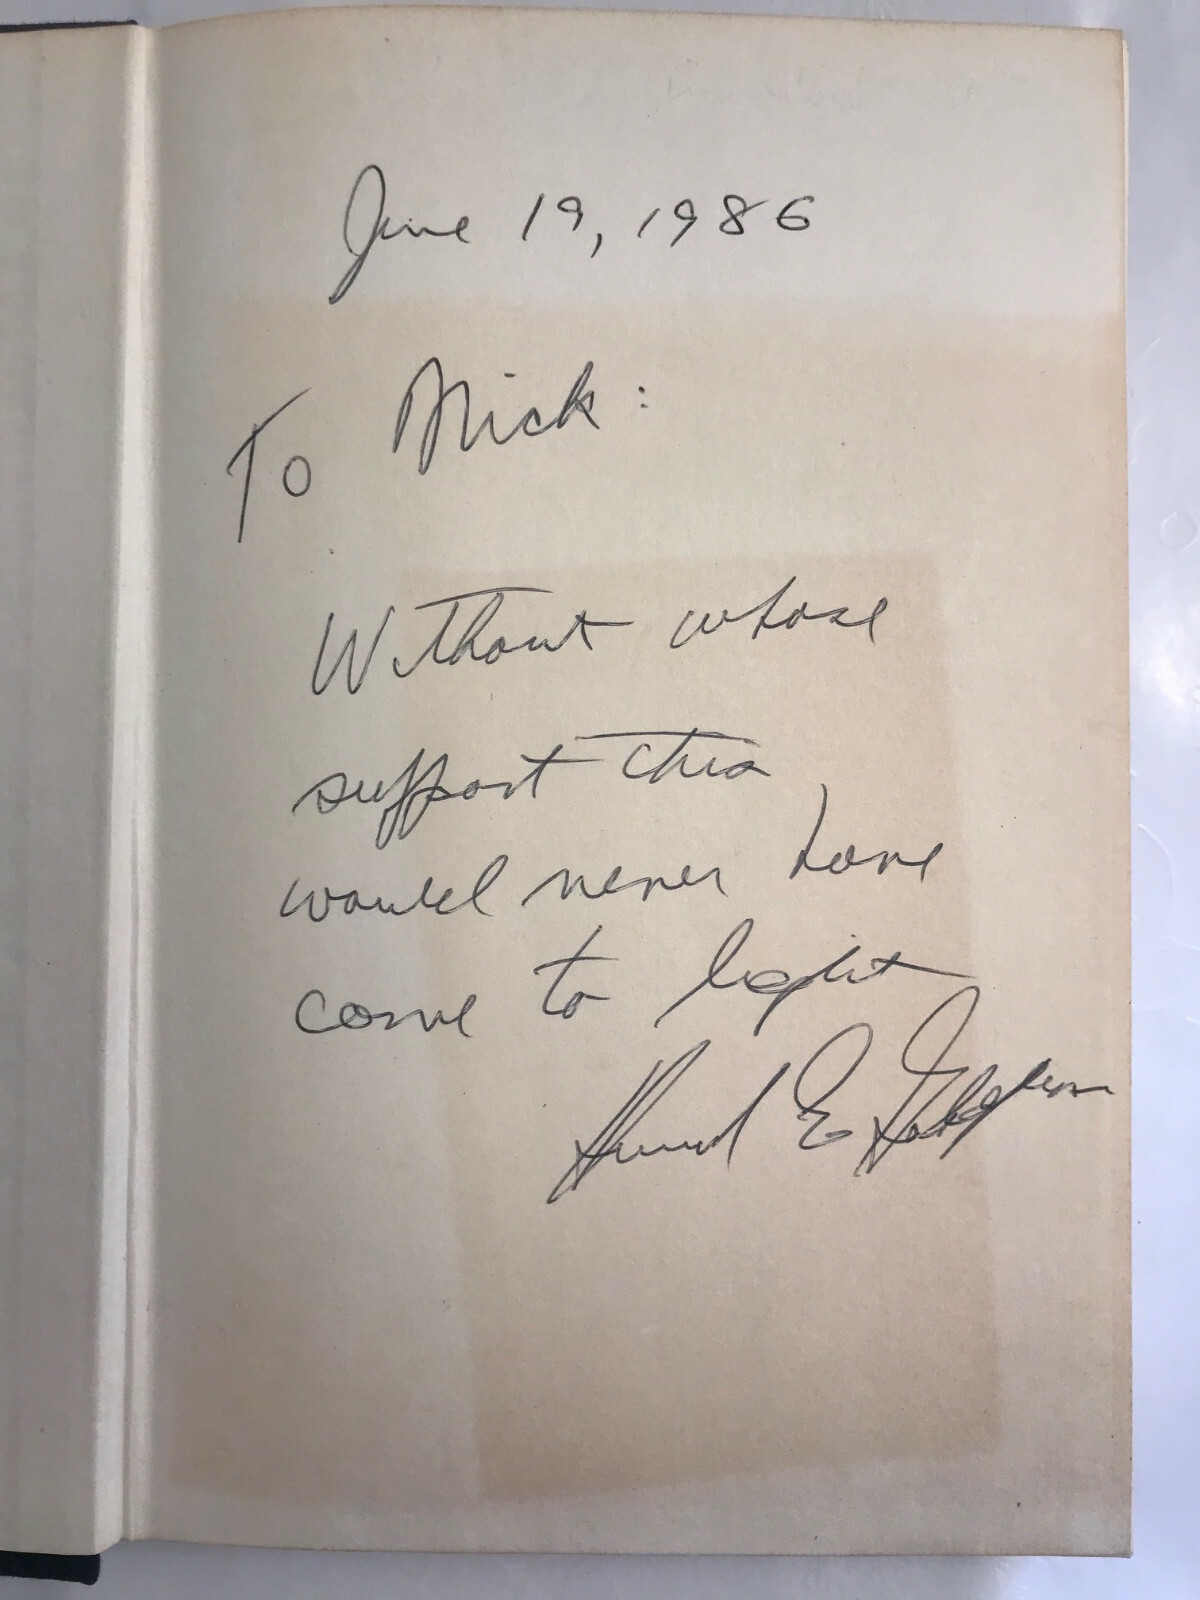 June 19, 1986
To Mick:
Without whose
support this
would never have
come to light
E